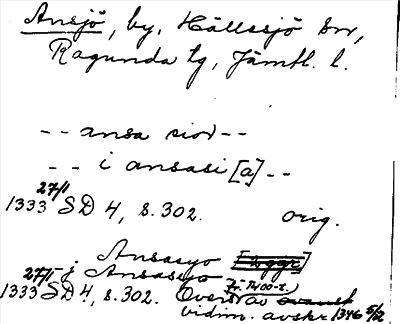 Ansjö, by, Hällesjö sn,
Ragunda tg, Jämtl. l.
-- ansa siov --
-- i ansasi [a] --
27/1
1333 SD 4, s. 302. orig.
j Ansasyo
27/1
1333 SD 4, s. 302. Övers. av
vidim. avskr 1346 5/12